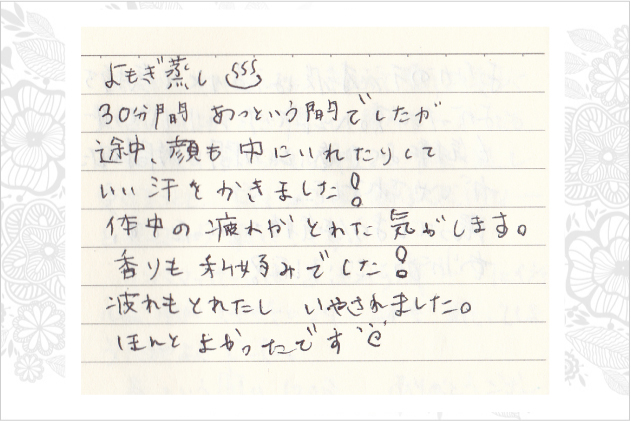 よもぎ蒸し
30分間 あっという間でしたが
途中、顔も中にいれたりして
いい汗をかきました!
体中の疲れがとれた気がします。
香りも私好みでした!
疲れもとれたし いやされました。
ほんと よかったです